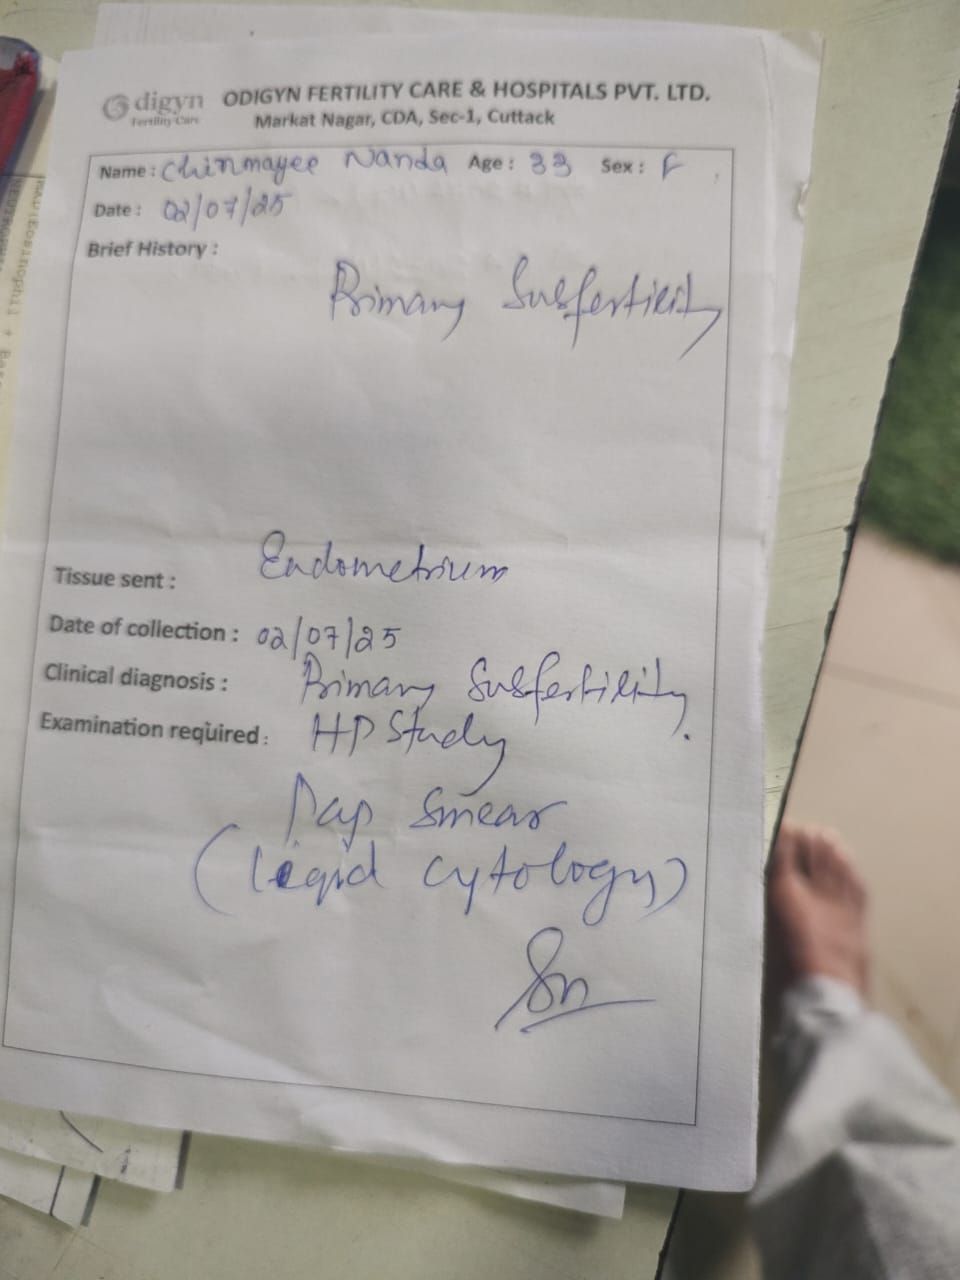 digyn
Fertility Care
ODIGYN FERTILITY CARE & HOSPITALS PVT. LTD.
Markat Nagar, CDA, Sec-1, Cuttack
Name : Chinmayee Nanda Age : 33 Sex : F
Date : 02/07/25
Brief History :
Primary Subfertility
Tissue sent : Endometrium
Date of collection : 02/07/25
Clinical diagnosis : Primary Subfertility
Examination required : HP Study
Pap smear
(liqid cytology)